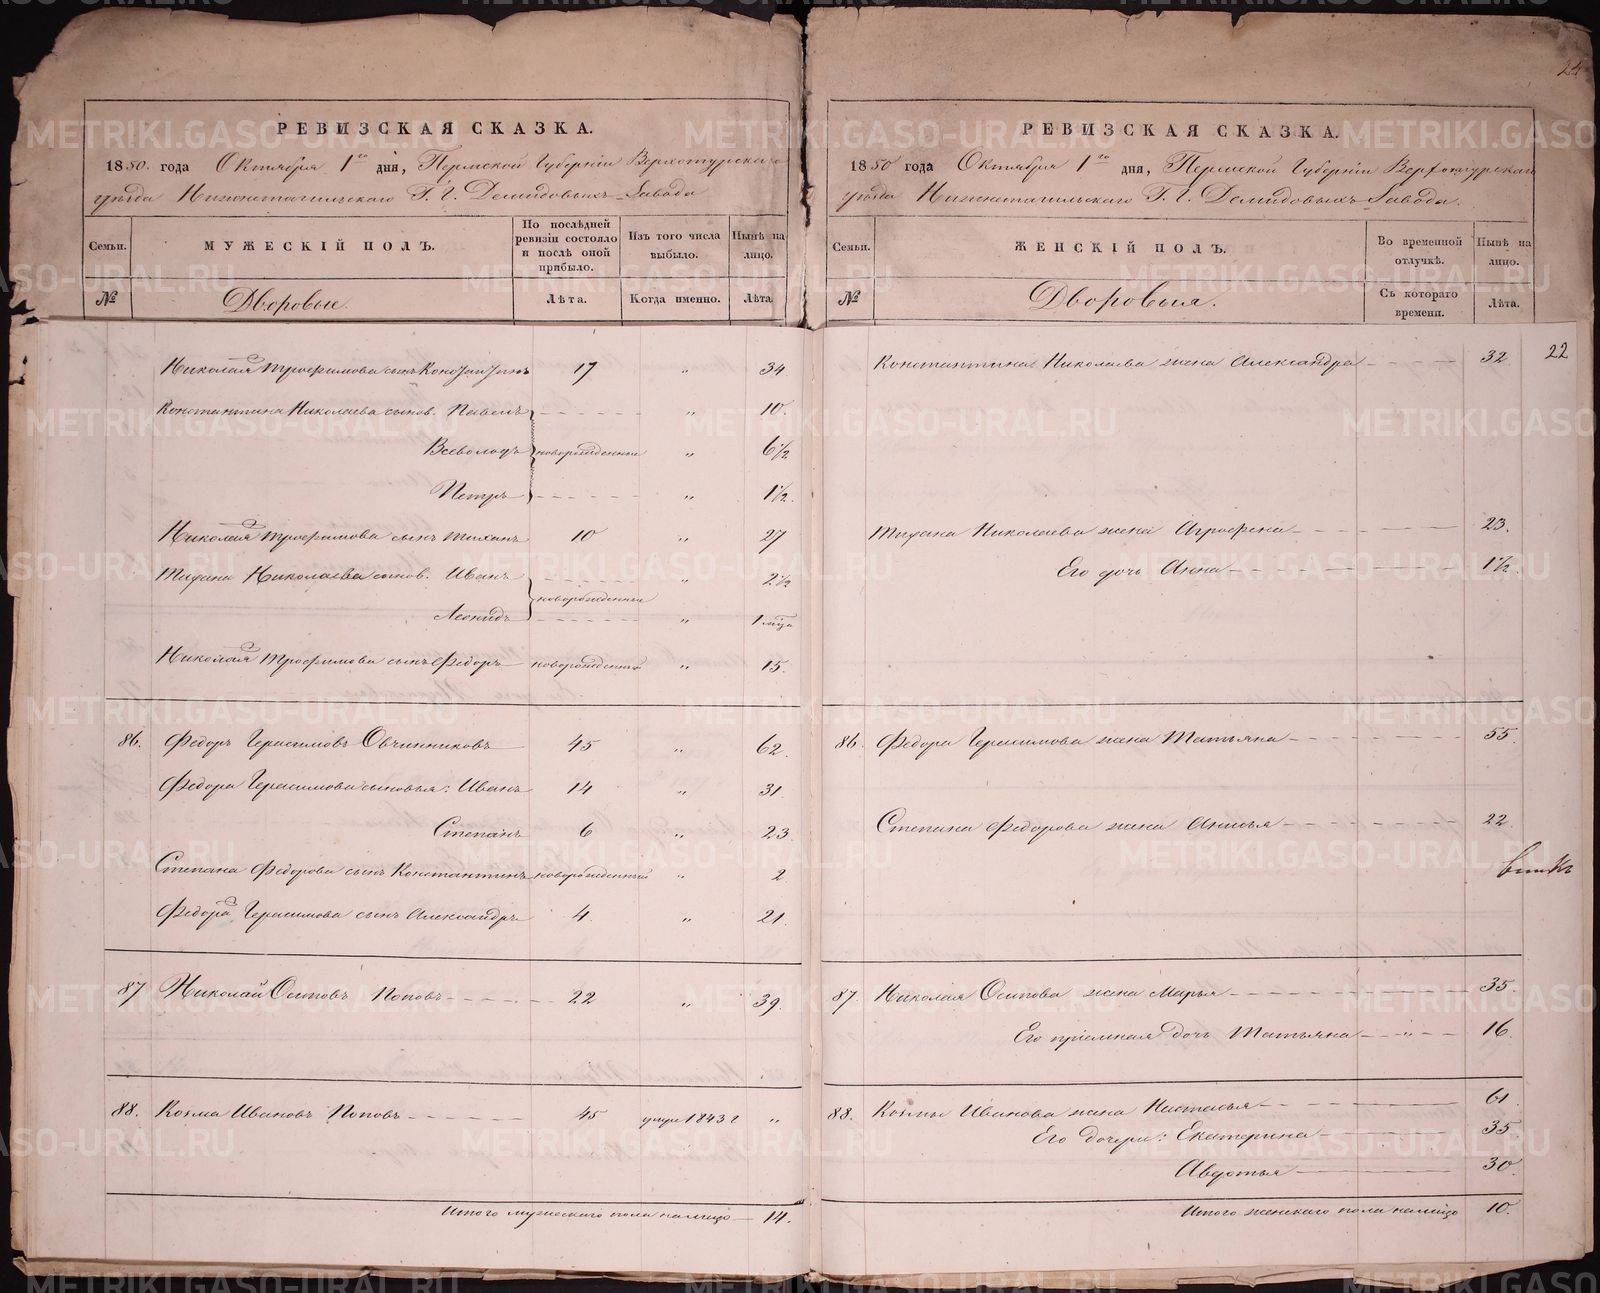 24
РЕВИЗСКАЯ СКАЗКА.
1850. года Октября 1го дня, Пермской Губерніи Верхотурскаго
уѣзда Нижнетагильскаго Г. Г. Демидовыхъ Завода
Семьи. МУЖЕСКІЙ ПОЛЪ. По послѣдней ревизіи состояло и послѣ оной прибыло. Изъ того числа выбыло. Нынѣ на лицо.
№ Дворовые. Лѣта. Когда именно. Лѣта
Николая Трофимова сынъ Константинъ 17 " 34
Константина Николаева сынов. Павелъ " 10.
Всеволодъ новорожденные " 6 1/2
Петръ " 1 1/2.
Николая Трофимова сынъ Тихонъ 10 " 27
Тихона Николаева сынов. Иванъ " 2 1/2
новорожденные
Леонидъ " 1 мѣся
Николая Трофимова сынъ Федоръ новорожденный " 15.
86. Федоръ Герасимовъ Овчинниковъ 45 " 62.
Федора Герасимова сыновья: Иванъ 14 " 31
Степанъ 6 " 23.
Степана Федорова сынъ Константинъ новорожденный " 2
Федора Герасимова сынъ Александръ 4 " 21.
87 Николай Осиповъ Поповъ 22 " 39.
88. Козма Ивановъ Поповъ 45 умре 1843 г "
Итого мужескаго пола налицо 14.
РЕВИЗСКАЯ СКАЗКА.
1850 года Октября 1го дня, Пермской Губерніи Верхотурскаго
уѣзда Нижнетагильскаго Г. Г. Демидовыхъ Завода.
Семьи. ЖЕНСКІЙ ПОЛЪ. Во временной отлучкѣ. Нынѣ на лицо.
№ Дворовыя. Съ котораго времени. Лѣта.
22
Константина Николаева жена Александра 32
Тихона Николаева жена Агрофена 23.
Его дочь Анна 1 1/2.
86. Федора Герасимова жена Татьяна 55
Степана Федорова жена Анисья 22
87. Николая Осипова жена Марья 35.
Его пріемная дочь Татьяна " 16.
88. Козмы Иванова жена Настасья 61
Его дочери: Екатерина 35
Авдотья 30.
Итого женскаго пола налицо 10.
METRIKI.GASO-URAL.RU